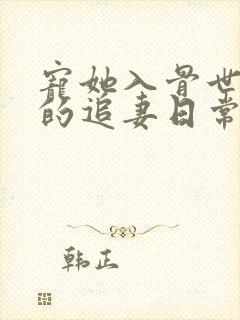 寵她入骨世
的追妻日常
韩正